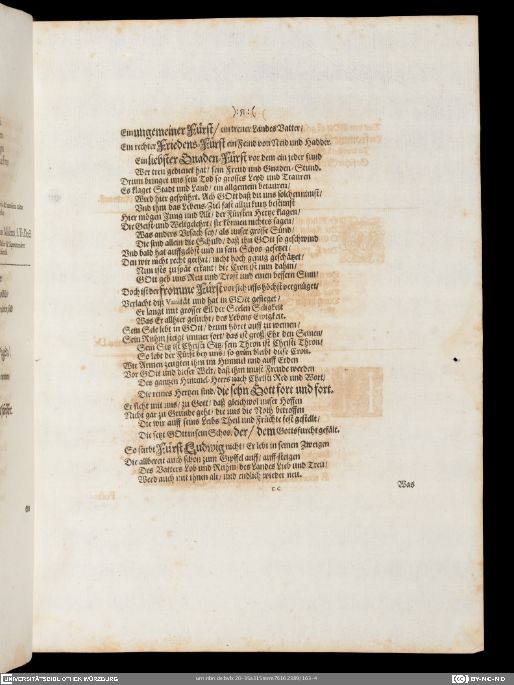 ):(
Ein ungemeiner Fürst/ ein treuer Landes Vatter/
Ein rechter Friedens-Fürst ein Feind von Neid und Hadder.
Ein liebster Gnaden-Fürst vor dem ein jeder stund
Wer treu gedienet hat/ sein Freud und Gnaden-Stund.
Drumm bringet uns sein Tod so grosses Leyd und Trauren
Es klaget Stadt und Land/ ein allgemein betauren/
Wird hier gespühret. Ach GOtt daß du uns so
Und ihm das Lebens-Ziel fast allzu kurz bestimst
Hier mögen Jung und Alt/ der Fürsten Herze klagen/
Die Geist- und Weltgelehrt/ sie können nichts sagen/
Was anders Ursach sey/ als unser grosse Sünd/
Die sind allein die Schuld/ daß ihn GOtt so geschwind
Und bald hat auffgelößt und in sein Schos gesetzt/
Den wir nicht recht geehrt/ nicht hoch genug geschätzet/
Nun ists zu spät erkant/ die Cron ist nun dahin/
GOtt geb uns Reu und Trost und einen bessern Sinn/
Doch ist der fromme Fürst vor sich uffs höchst vergnüget/
Verlacht diß Vanität und hat in GOtt gesieget/
Er langt mit grosser Eil der Seelen Seligkeit
Was Er allhier gesucht/ des Lebens Ewigkeit.
Sein Sele lebt in GOtt/ drum höret auff zu weinen/
Sein Ruhm steigt immer fort/ das ist groß Ehr den Seinen
Sein Sitz ist Christi Sitz/ sein Thron ist Christi Thron/
So lebt der Fürst bey uns/ so grün bleibt diese Cron.
Wir Armen zeugten ihm im Himmel und auff Erden
Vor GOtt und dieser Welt, daß ihm must Freude werden
Des gantzen Himmel-Heers nach Christi Red und Wort/
Die reines Hertzen sind/ die sehn Gott fort und fort.
Er fleht mit uns/ zu Gott/ daß gleichwol unser Hoffen
Nicht gar zu Grunde geht/ die uns die Noth betroffen
Die wir auff seins Leibs Theil und Früchte fest gestellt/
Die setzt GOtt in sein Schos/ der/ dem Gottsfurcht gefält.
So stirbt Fürst Ludwig nicht/ Er lebt in seinen Zweigen
Die allbereit auch schon zum Gipffel auff/ auff-steigen
Des Vatters Lob und Ruhm/ des Landes Lieb und Treu/
Werd auch mit ihnen alt/ und endlich wieder neu.
Was
UNIVERSITÄTSBIBLIOTHEK WÜRZBURG
BY-NC-ND